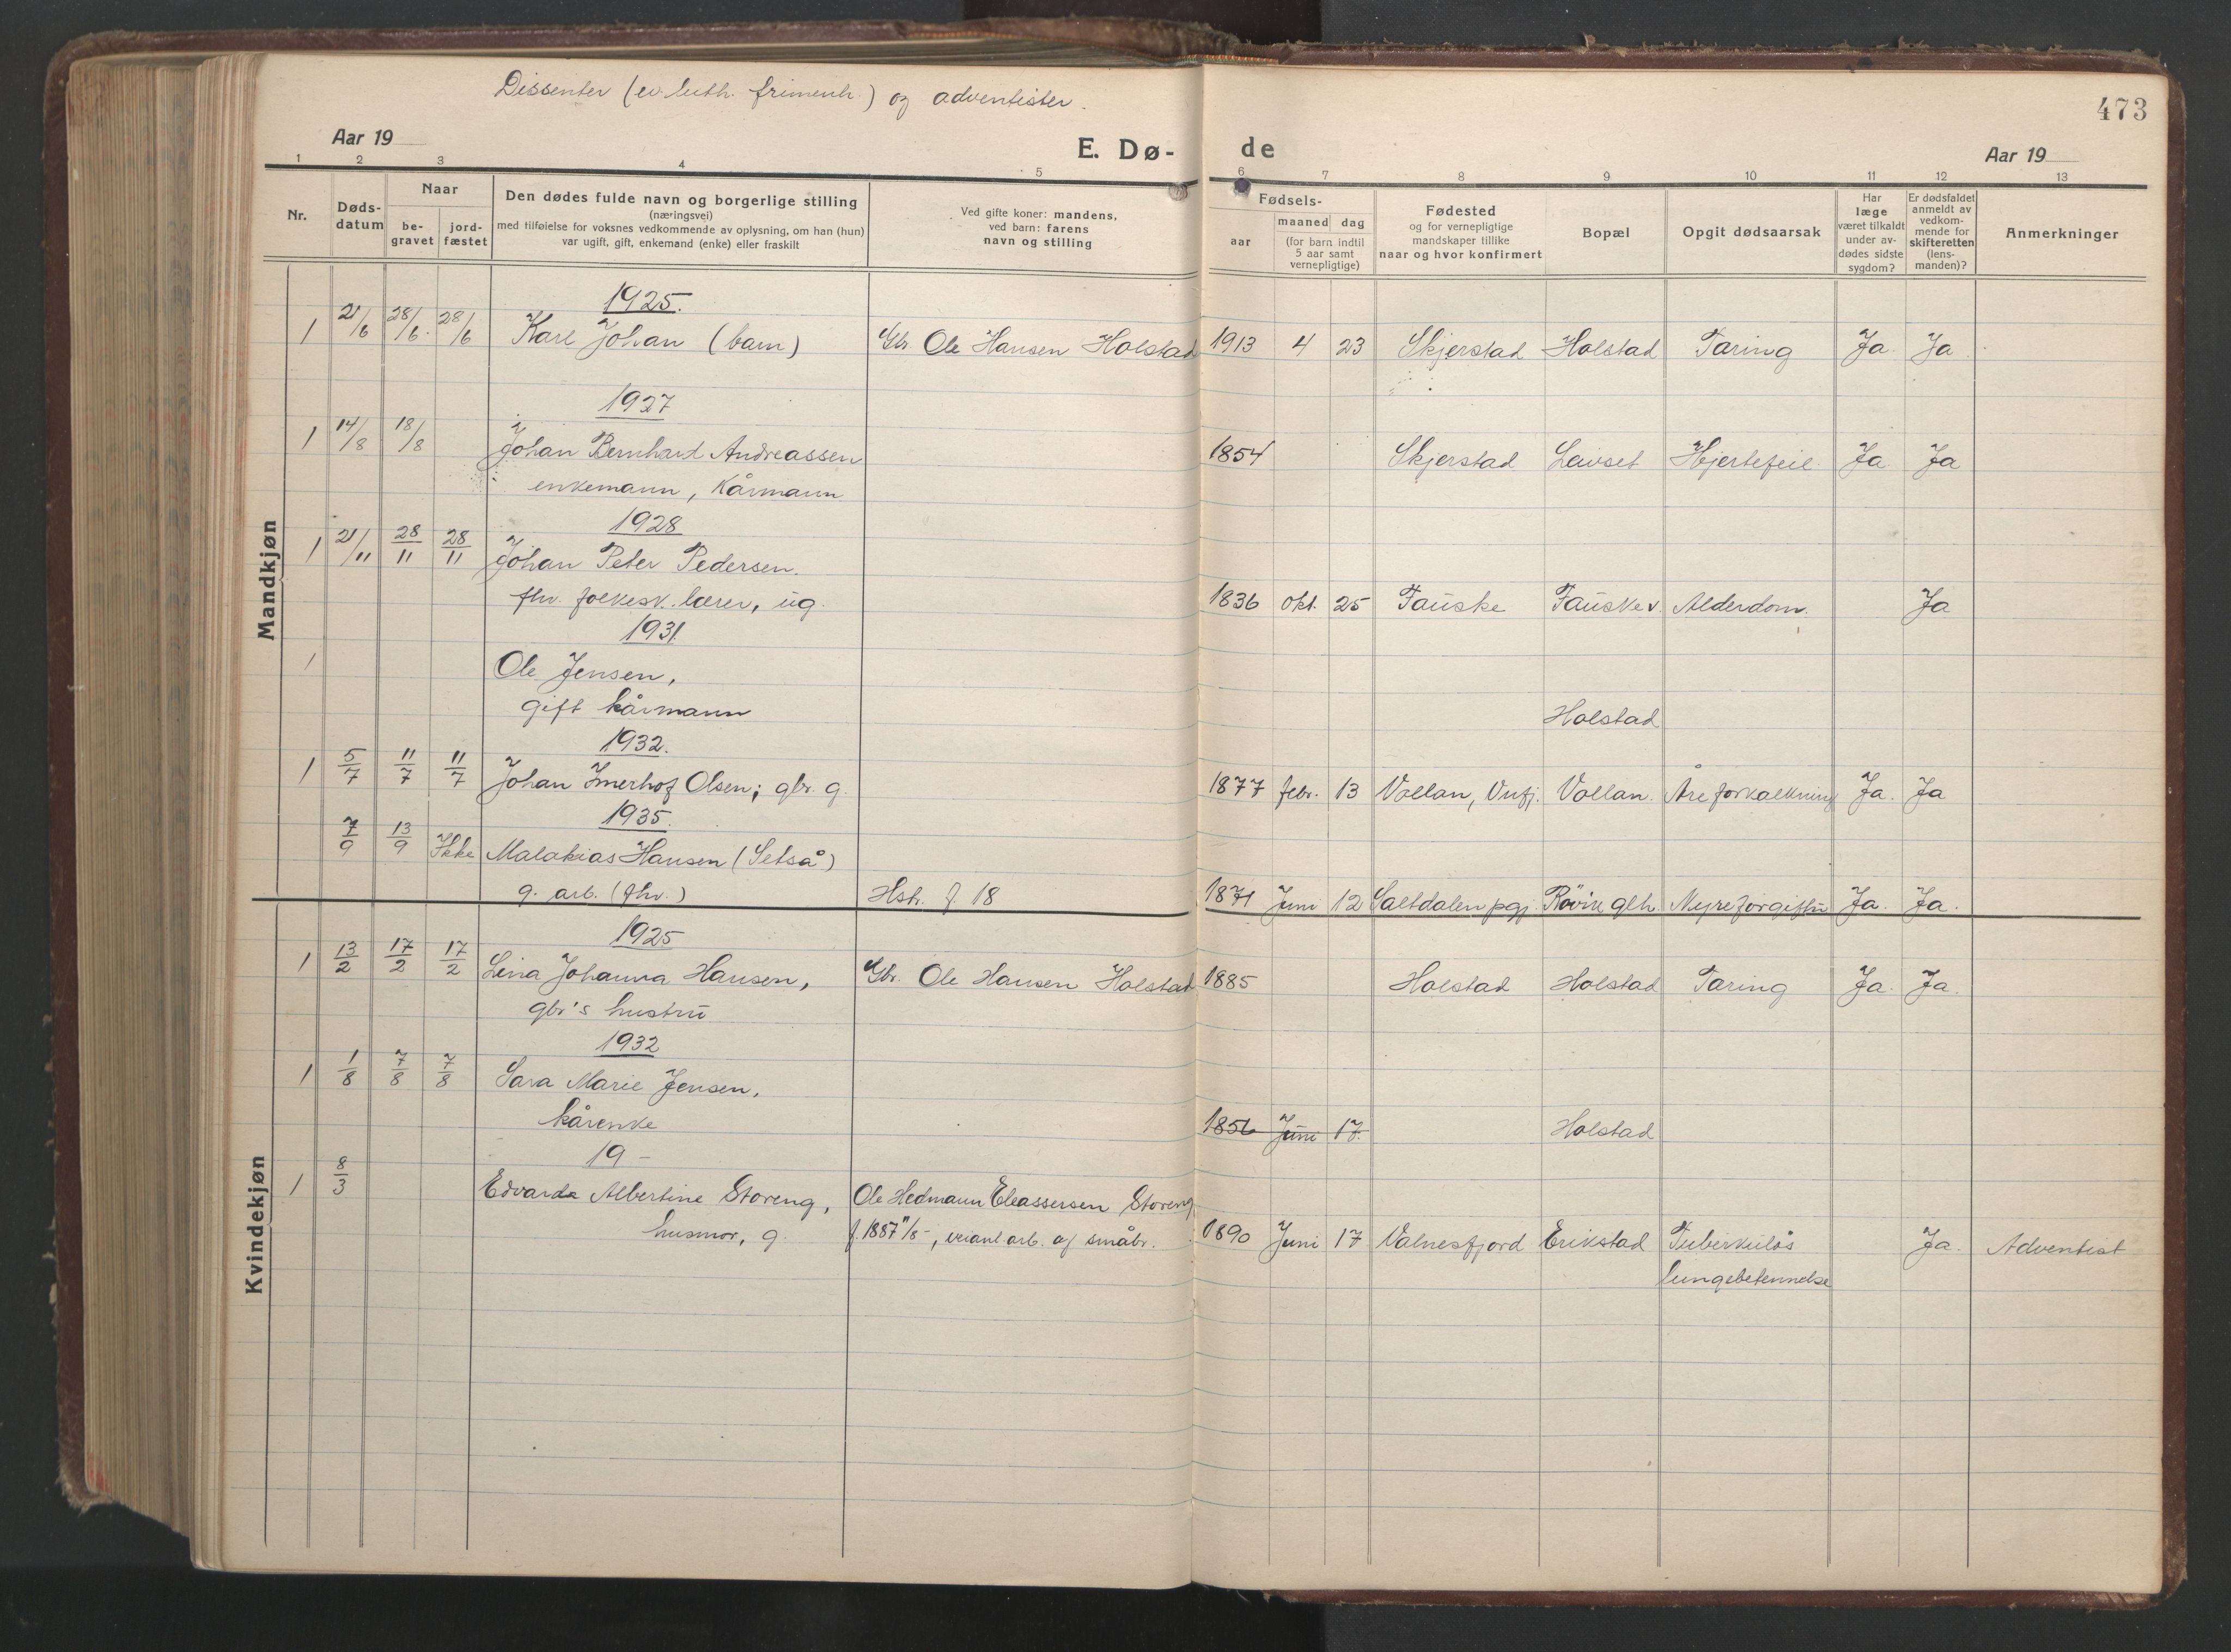 Dissenter (ev. luth. frimenh.) og adventister.
473
Aar 19
E. Dø-
de
Aar 19
1 2 3 4 5 6 7 8 9 10 11 12 13
Nr.
Døds-
datum
Naar
be-
gravet
jord-
fæstet
Den dødes fulde navn og borgerlige stilling
(næringsvei)
med tilføielse for voksnes vedkommende av oplysning, om han (hun)
var ugift, gift, enkemand (enke) eller fraskilt
Ved gifte koner: mandens,
ved barn: farens
navn og stilling
Fødsels-
aar
maaned dag
(for barn indtil
5 aar samt
vernepligtige)
Fødested
og for vernepligtige
mandskaper tillike
naar og hvor konfirmert
Bopæl
Opgit dødsaarsak
Har
læge
været tilkaldt
under av-
dødes sidste
sygdom?
Er dødsfaldet
anmeldt av
vedkom-
mende for
skifteretten
(lens-
manden)?
Anmerkninger
Mandkjøn
1925.
1 21/6 28/6. 28/6 Karl Johan (barn) Gbr. Ole Hansen Holstad 1913 4 23 Skjerstad Holstad Tæring Ja Ja
1927
1 14/8 18/8 Johan Bernhard Andreassen 1854 Skjerstad Leivset Hjertefeil Ja Ja
enkemann, Kårmann
1928
1 21/11 28/11 28/11 Johan Peter Pedersen.
fhv. folkesk. lærer, ug. 1836 okt. 25 Fauske Fauske v. Alderdom. Ja
1931.
1 Ole Jensen,
gift kårmann Holstad
1932.
1 5/7 11/7 11/7 Johan Imerhof Olsen; gbr. g. 1877 febr. 13 Vollan, Vnfj. Vollan. Åreforkalkning Ja. Ja
1935.
7/9 13/9 Ikke Malakias Hansen (Setså)
g. arb. (fhv.) Hstr. f. 18 1871 Juni 12 Saltdalen pgj. Røvik glh. Nyreforgiftn Ja. Ja.
Kvindekjøn
1925
1 13/2 17/2 17/2 Lina Johanna Hansen, Gbr. Ole Hansen Holstad 1885 Holstad Holstad Tæring Ja. Ja.
gbr's hustru
1932
1 1/8 7/8 7/8 Sara Marie Jensen,
kårenke 1856 Juni 17. Holstad
19-
1 8/3 Edvarda Albertine Storeng, Ole Hedmann Eleassersen Storeng
husmor, g. f. 1887 11/8-, veianl. arb. og småbr. 1890 Juni 17 Valnesfjord Erikstad Tuberkuløs Ja. Adventist
lungebetennelse